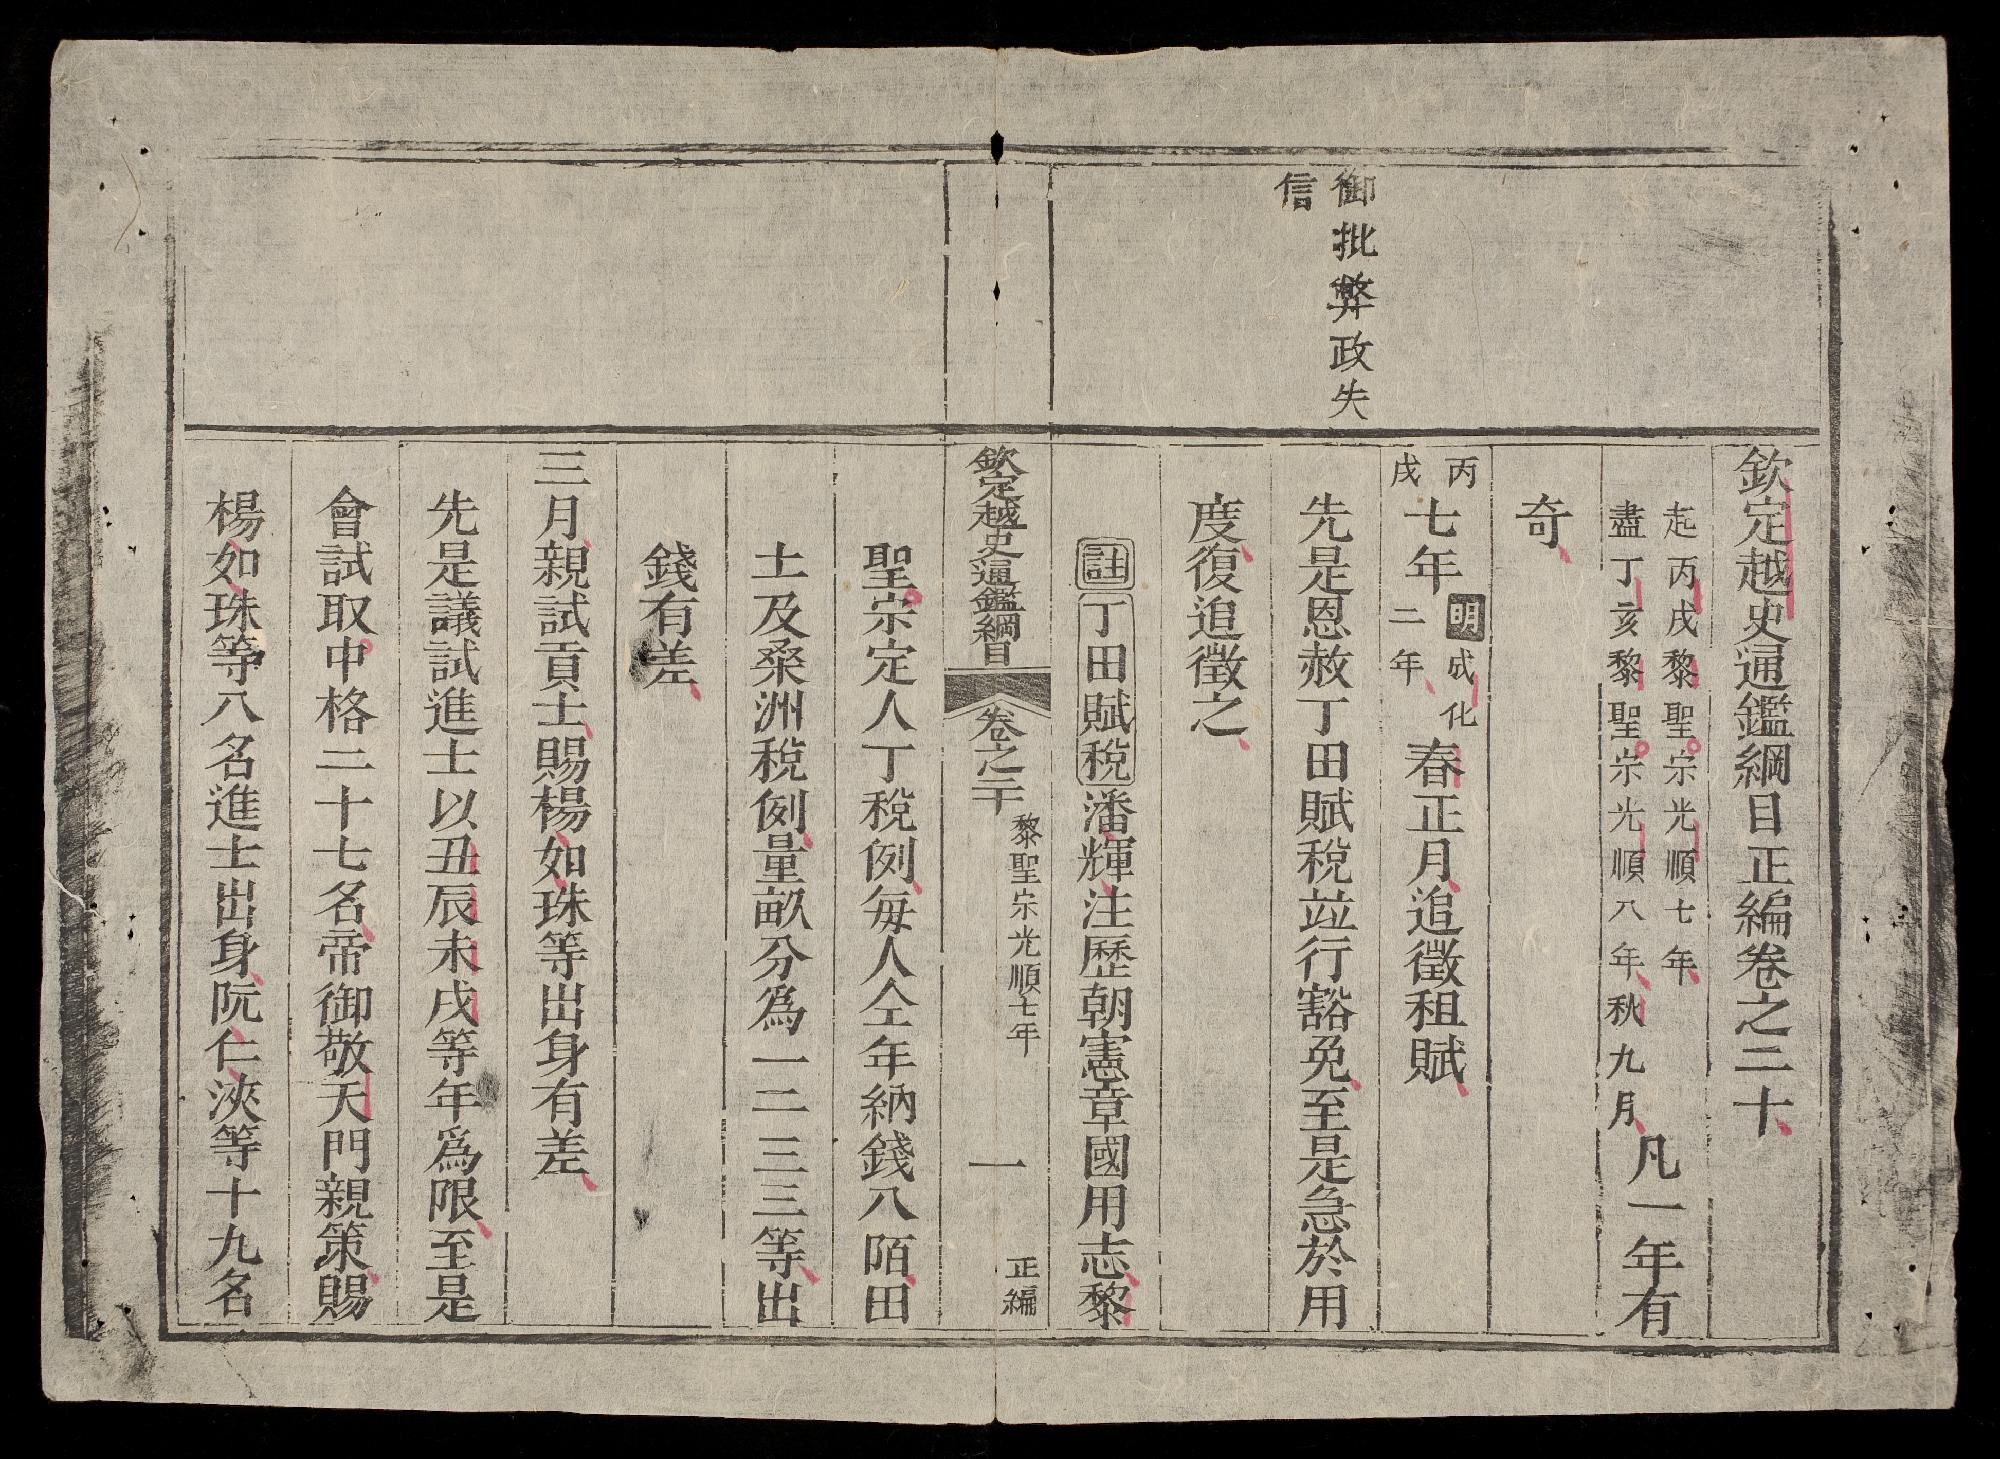 欽定越史通鑑綱目正編卷之二十
起丙戌黎聖宗光順七年
盡丁亥黎聖宗光順八年秋九月
凡一年有
奇
御批弊政失
信
丙戌七年明成化二年春正月追徵租賦
先是恩赦丁田賦稅竝行豁免至是急於用
度復追徵之
註丁田賦稅潘輝注歷朝憲章國用志黎
欽定越史通鑑綱目 卷之二十 黎聖宗光順七年 一 正編
聖宗定人丁稅例每人仝年納錢八陌田
土及桑洲稅例量畝分爲一二三三等出
錢有差
三月親試貢士賜楊如珠等出身有差
先是議試進士以丑辰未戌等年爲限至是
會試取中格二十七名帝御敬天門親策賜
楊如珠等八名進士出身阮仁浹等十九名